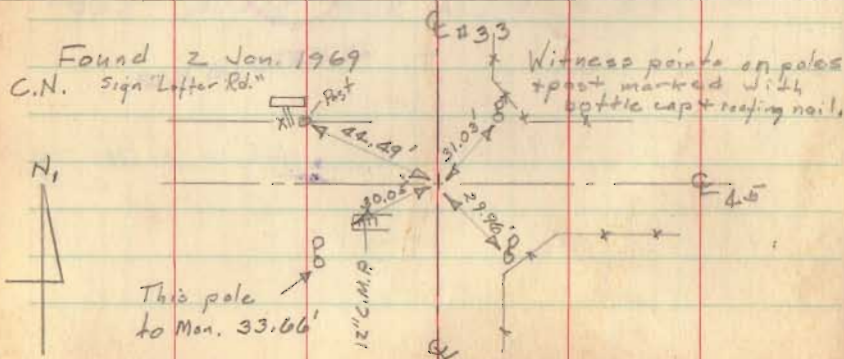 ℄ #33
Found 2 Jan. 1969
C.N. Sign "Lofter Rd."
Post
Witness points on poles
+ post marked with
bottle cap + roofing nail.
44.49'
31.03'
N,
30.05'
29.96'
℄ 45
This pole
to Mon. 33.66'
12" C.M.P.
℄